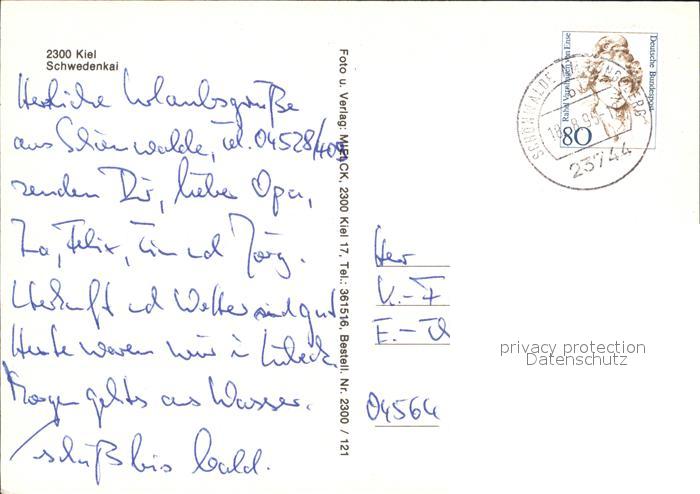 2300 Kiel
Schwedenkai
Herzliche Urlaubsgrüße
aus Schönwalde, Tel. 04528/409
senden Dir, lieber Opa,
Felix, Tim und Jörg.
Unterkunft und Wetter sind gut
Heute waren wir in Lübeck.
Morgen gehts ans Wasser.
Tschüß bis bald.
Foto u. Verlag: MIPACK, 2300 Kiel 17, Tel.: 361516, Bestell. Nr. 2300 / 121
Deutsche Bundespost
Rahel Varnhagen von Ense
80
23744
Herr
V.-F
E.-
04564
privacy protection
Datenschutz